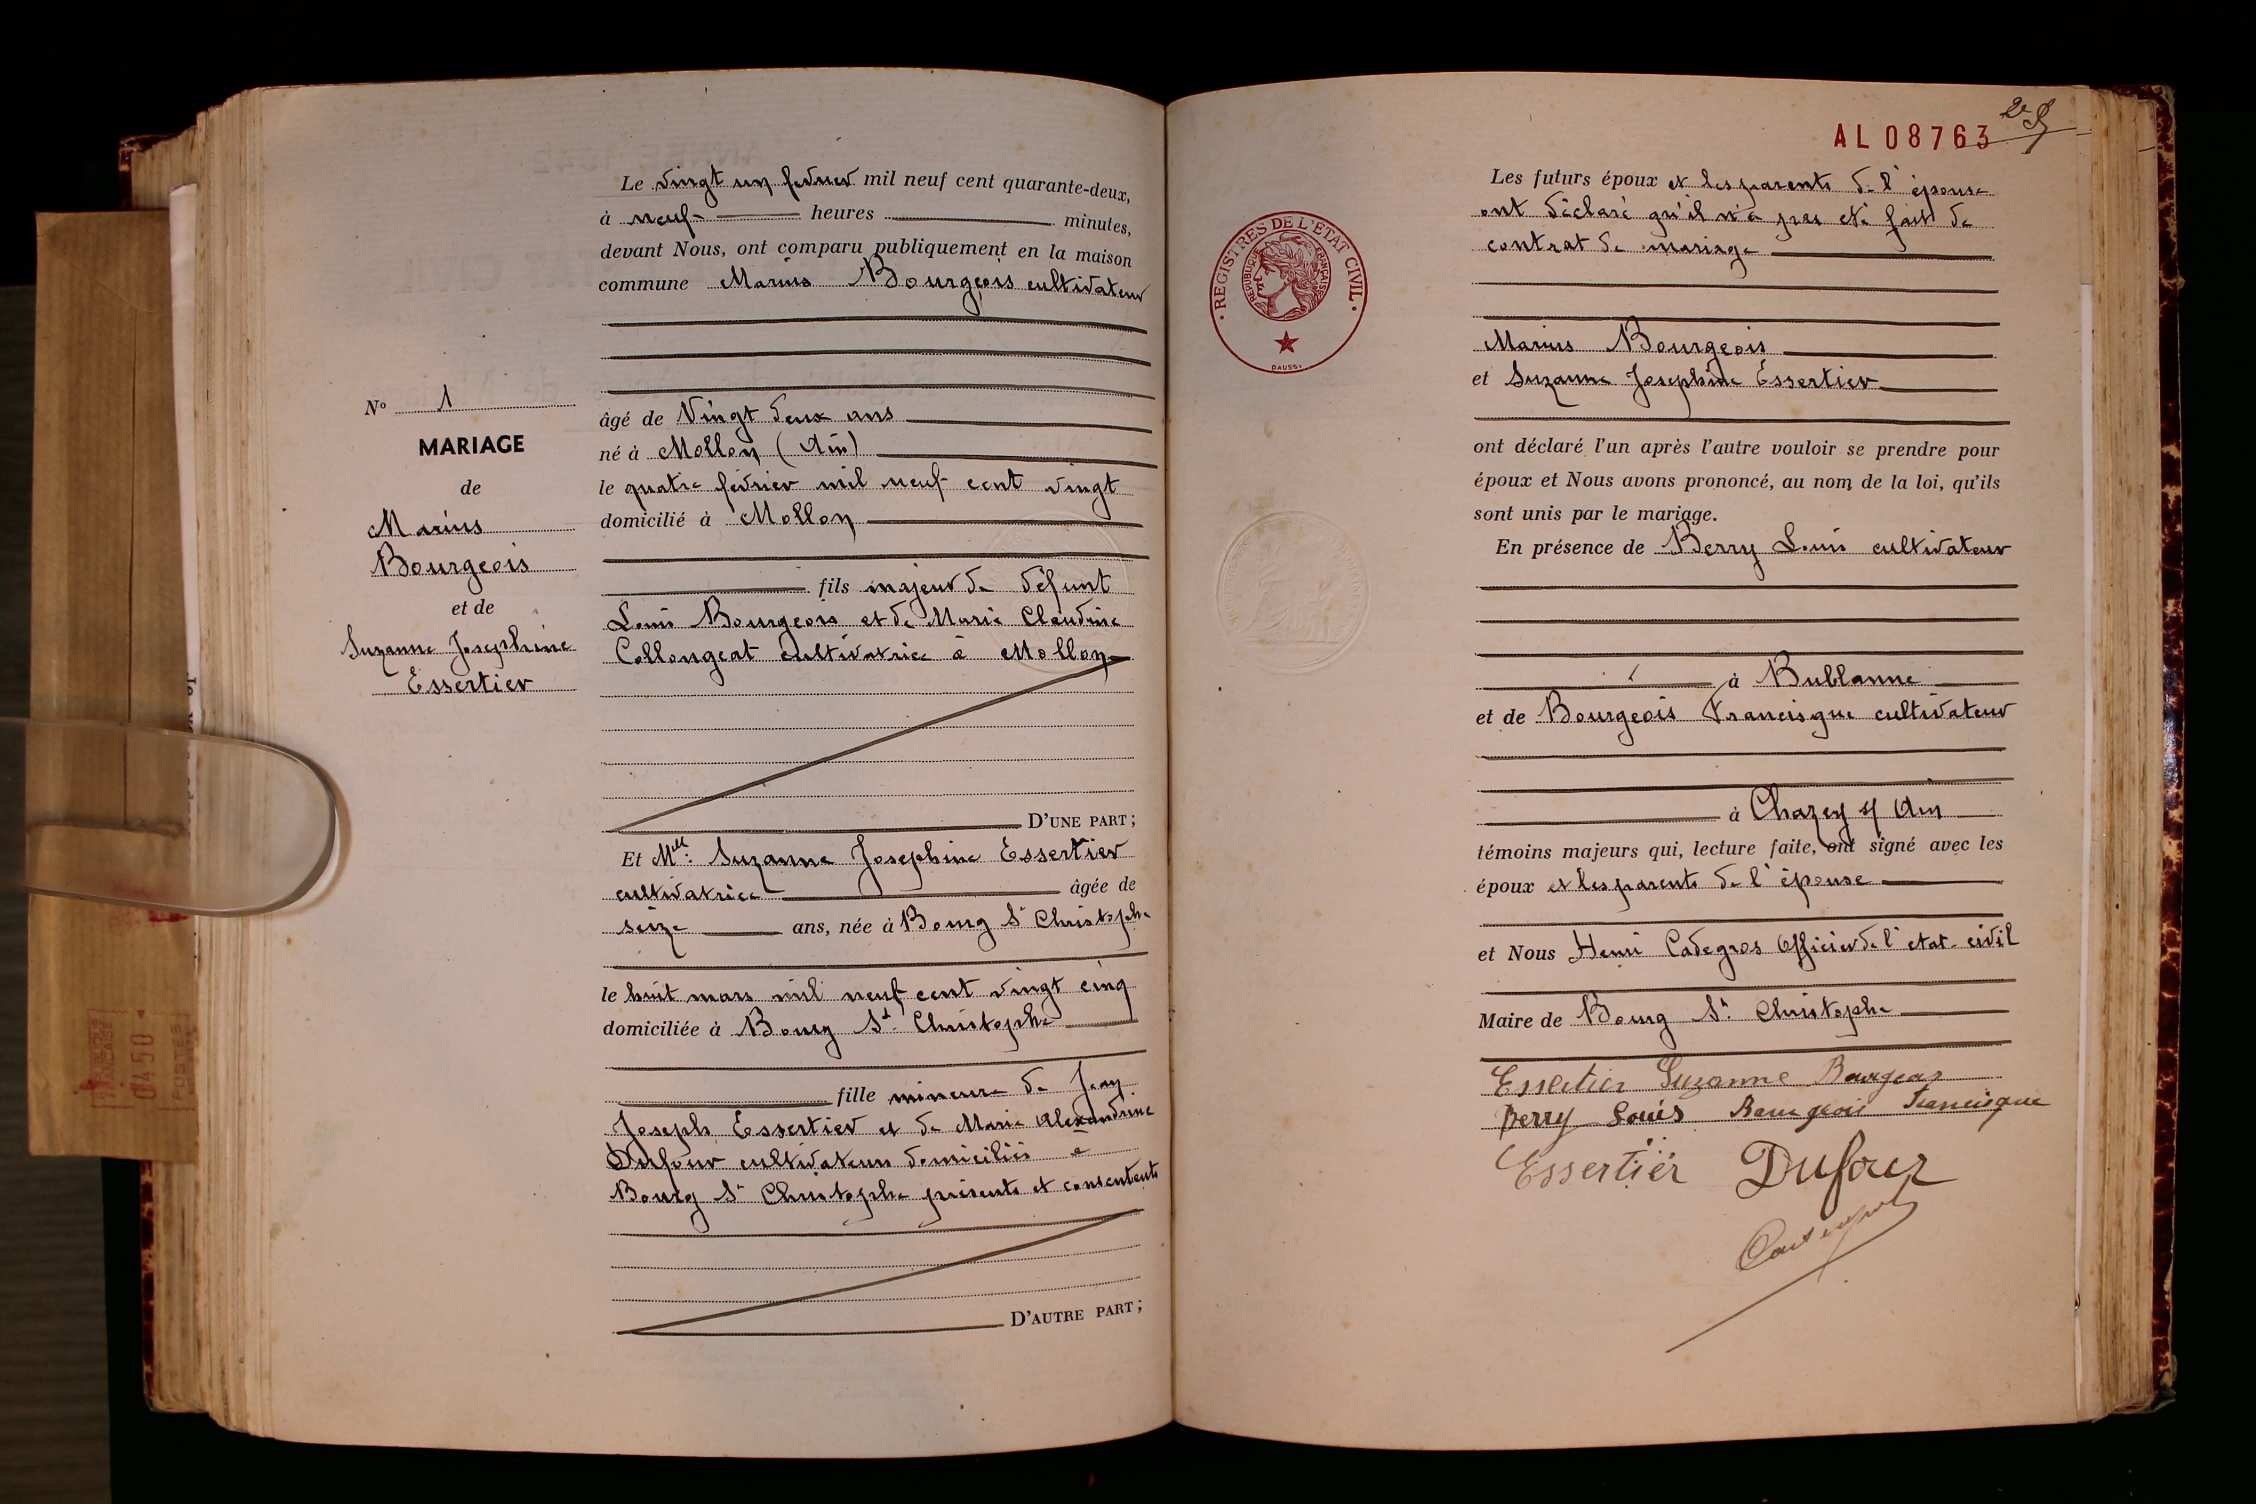 Le vingt un fevrier mil neuf cent quarante-deux,
à neuf heures minutes,
devant Nous, ont comparu publiquement en la maison
commune Marius Bourgeois cultivateur
âgé de Vingt deux ans
né à Mollon (Ain)
le quatre février mil neuf cent vingt
domicilié à Mollon
fils majeur de défunt
Louis Bourgeois et de Marie Claudine
Collongeat cultivatrice à Mollon
D'UNE PART;
Et Mlle: Suzanne Josephine Essertier
cultivatrice âgée de
seize ans, née à Bourg St Christophe
le huit mars mil neuf cent vingt cinq
domiciliée à Bourg St Christophe
fille mineure de Jean
Joseph Essertier et de Marie Alexandrine
Dufour cultivateurs domiciliés à
Bourg St Christophe présents et consentents
D'AUTRE PART;
No 1
MARIAGE
de
Marius
Bourgeois
et de
Suzanne Josephine
Essertier
AL 08763
REGISTRES DE L'ETAT CIVIL
REPUBLIQUE FRANÇAISE
DAUSSY
Les futurs époux et les parents de l'épouse
ont déclaré qu'il n'a pas été fait de
contrat de mariage
Marius Bourgeois
et Suzanne Josephine Essertier
ont déclaré l'un après l'autre vouloir se prendre pour
époux et Nous avons prononcé, au nom de la loi, qu'ils
sont unis par le mariage.
En présence de Berry Louis cultivateur
à Bublanne
et de Bourgeois Francisque cultivateur
à Chazey s/ Ain
témoins majeurs qui, lecture faite, ont signé avec les
époux et les parents de l'épouse
et Nous Henri Cadegros Officier de l'etat civil
Maire de Bourg St Christophe
Essertier Suzanne Bourgeois
Berry Louis Bourgeois Francisque
Essertier Dufour
0450
POSTES